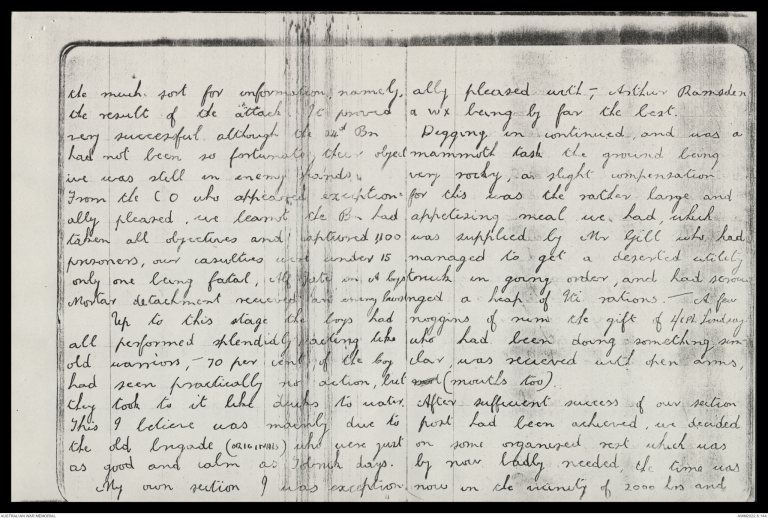 the much sort for information, namely,
the result of the attack. It proved
very successful although the 24th Bn
had not been so fortunate, their objec
ive was still in enemy hands.
From the C O who appeared exception-
ally pleased, we learnt the Bn had
taken all objectives and captured 1100
prisoners, our casulties were under 15
only one being fatal, in A Coys
Mortar detachment recieved an enemy
Up to this stage the boys had
all performed splendidly acting like
old warriors, - 70 per cent of the Coy
had seen practically no action, but
they took to it like ducks to water.
This I believe was mainly due to
the old brigade (ORIGINALS) who were just
as good and calm as Tobruk days.
My own section I was exception-
ally pleased with, - Arthur Ramsden
a W X being by far the best.
Digging in continued, and was a
mammoth task the ground being
very rocky, a slight compensation
for this was the rather large and
appetising meal we had, which
was supplied by Mr Gill who had
managed to get a deserted utility
truck in going order, and had scrou
nged a heap of Iti rations. - A few
noggins of rum the gift of Lindsay
who had been doing something sim-
ilar, was recieved with open arms,
(mouths too).
After sufficient success of our section
post had been achieved, we decided
on some organised rest which was
by now badly needed, the time was
now in the vicinity of 2000 hrs and
AUSTRALIAN WAR MEMORIAL